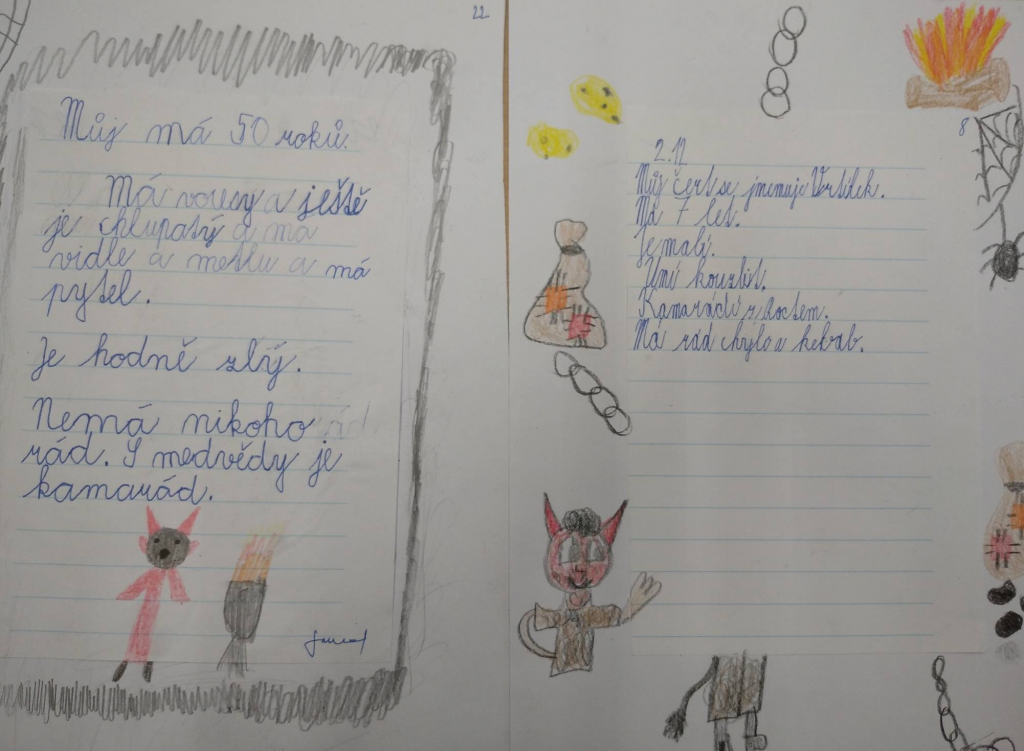 22
Můj má 50 roků.
Má vousy a ještě
je chlupatý a má
vidle a metlu a má
pytel.
Je hodně zlý.
Nemá nikoho rád
rád. S medvědy je
kamarád.
8
2.12
Můj čert se jmenuje Vrtílek.
Má 7 let.
Je malý.
Umí kouzlit.
Kamarádí z
Má rád a kebab.